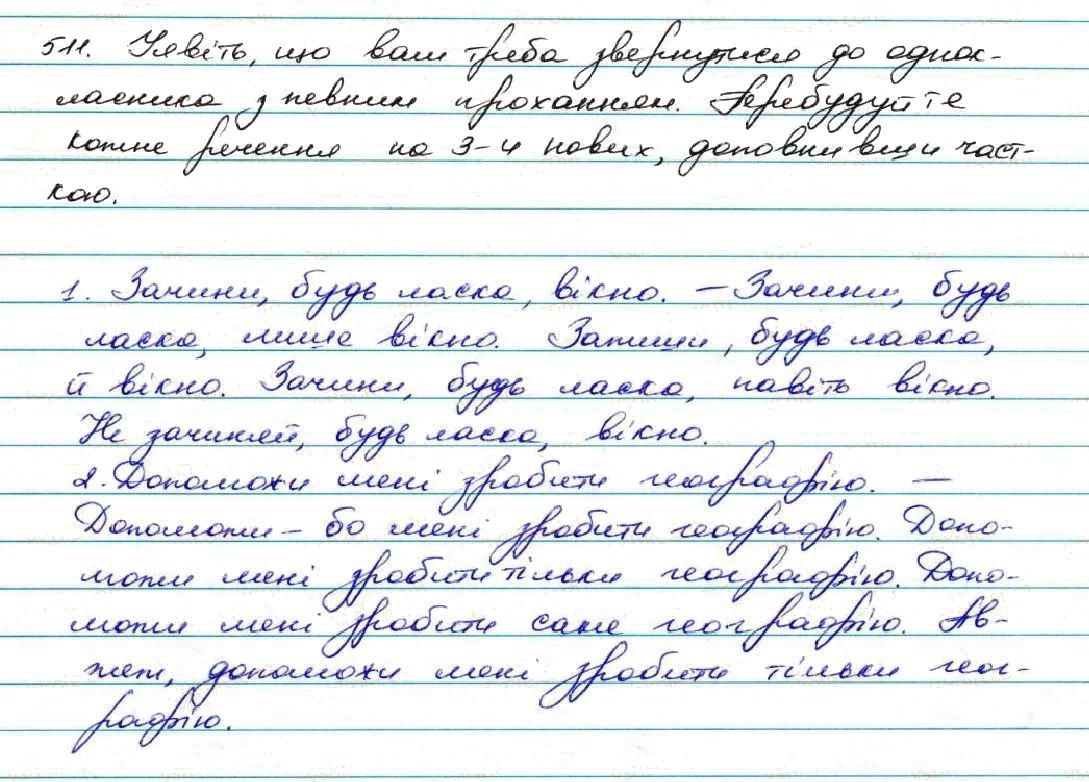 511. Уявіть, що вам треба звернутися до однок-
ласника з певним проханням. Перебудуйте
кожне речення на 3-4 нових, доповнивши част-
кою.
1. Зачини, будь ласка, вікно. — Зачини, будь
ласка, лише вікно. Запиши, будь ласка,
й вікно. Зачини, будь ласка, навіть вікно.
Не зачиняй, будь ласка, вікно.
2. Допоможи мені зробити географію. —
Допоможи-бо мені зробити географію. Допо-
можи мені зробити тільки географію. Допо-
можи мені зробити саме географію. Ав-
жеж, допоможи мені зробити тільки геог-
рафію.